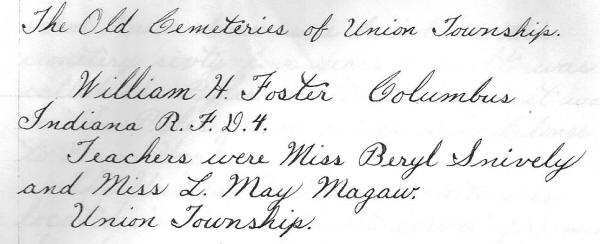 The Old Cemeteries of Union Township.
William H. Foster Columbus
Indiana R.F.D.4.
Teachers were Miss Beryl Snively
and Miss L. May Magaw.
Union Township.